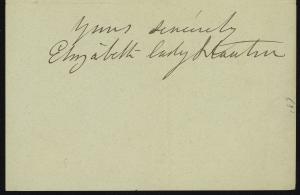 Yours sincerely
Elizabeth Lady